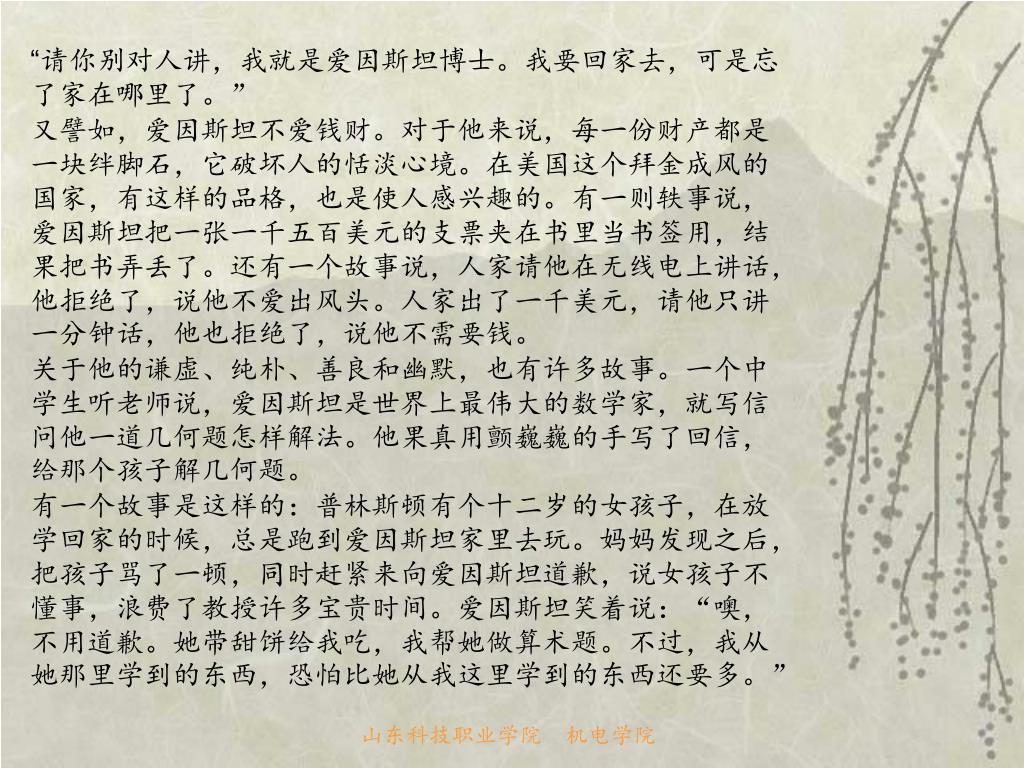 “请你别对人讲，我就是爱因斯坦博士。我要回家去，可是忘
了家在哪里了。”
又譬如，爱因斯坦不爱钱财。对于他来说，每一份财产都是
一块绊脚石，它破坏人的恬淡心境。在美国这个拜金成风的
国家，有这样的品格，也是使人感兴趣的。有一则轶事说，
爱因斯坦把一张一千五百美元的支票夹在书里当书签用，结
果把书弄丢了。还有一个故事说，人家请他在无线电上讲话，
他拒绝了，说他不爱出风头。人家出了一千美元，请他只讲
一分钟话，他也拒绝了，说他不需要钱。
关于他的谦虚、纯朴、善良和幽默，也有许多故事。一个中
学生听老师说，爱因斯坦是世界上最伟大的数学家，就写信
问他一道几何题怎样解法。他果真用颤巍巍的手写了回信，
给那个孩子解几何题。
有一个故事是这样的：普林斯顿有个十二岁的女孩子，在放
学回家的时候，总是跑到爱因斯坦家里去玩。妈妈发现之后，
把孩子骂了一顿，同时赶紧来向爱因斯坦道歉，说女孩子不
懂事，浪费了教授许多宝贵时间。爱因斯坦笑着说：“噢，
不用道歉。她带甜饼给我吃，我帮她做算术题。不过，我从
她那里学到的东西，恐怕比她从我这里学到的东西还要多。”
山东科技职业学院 机电学院